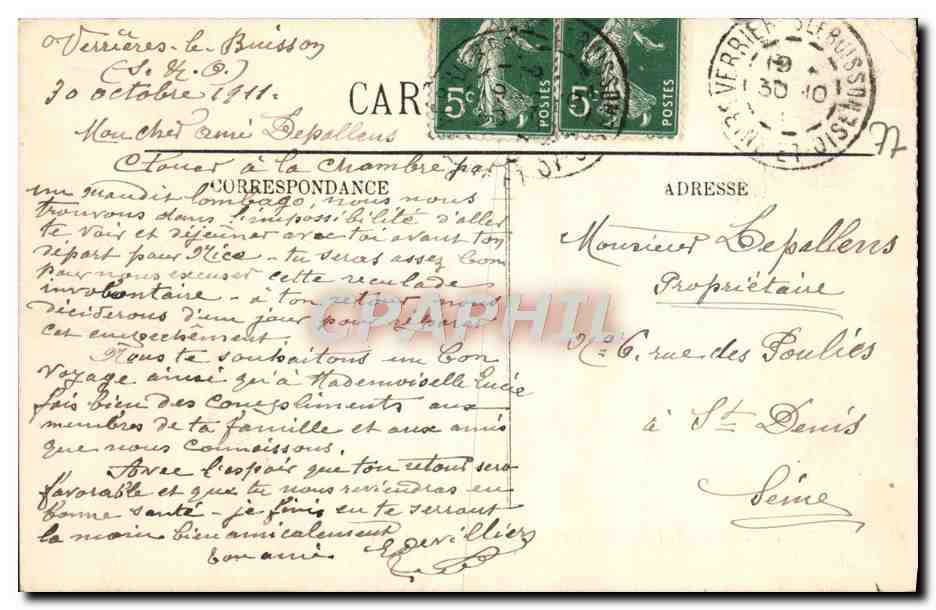 Verrières-le-Buisson
(S. & O.)
30 octobre 1911.
CAR
Mon cher ami Lepallens
Clouer à la chambre par
CORRESPONDANCE
un maudit lombago, nous nous
trouvons dans l'impossibilité d'aller
te voir et déjeuner avec toi avant ton
départ pour Nice - tu seras assez bon
pour nous excuser cette reculade
involontaire - à ton retour nous
déciderons d'un jour pour réparer
cet empechêment.
Nous te souhaitons un bon
voyage ainsi qu'à Mademoiselle Lucie
fais bien des compliments aux
membres de ta famille et aux amis
que nous connaissons.
Avec l'espoir que ton retour sera
favorable et que tu nous reviendras en
bonne santé - je finis en te serrant
la main bien amicalement
ton ami. E. Devilliers
5c POSTES
5c POSTES
VERRIÈRES-LE-BUISSON
19
30 10
SEINE-ET-OISE
77
ADRESSE
Monsieur Lepallens
Propriétaire
No 6. rue des Poulies
à St Denis
Seine
CPAPHIL